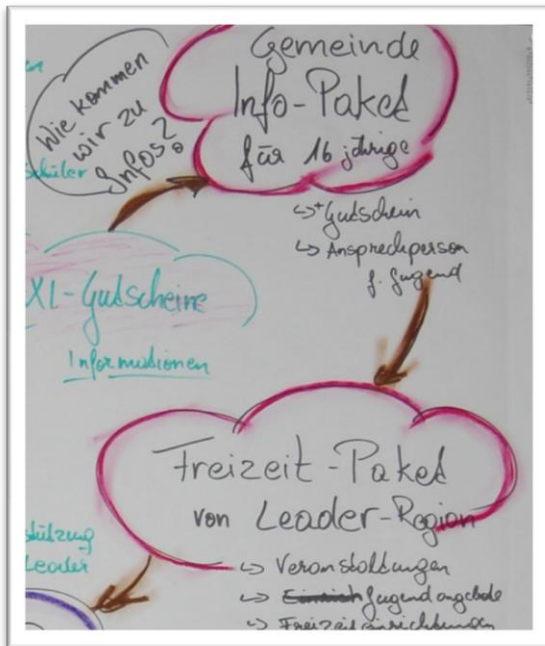 Wie kommen
wir zu
Infos?
Gemeinde
Info-Paket
für 16 jährige
↳ + Gutschein
↳ Ansprechperson
f. Jugend
XL-Gutscheine
Informationen
Freizeit-Paket
von Leader-Region
↳ Veranstaltungen
↳ Jugendangebote
↳ Freizeiteinrichtungen
Leader